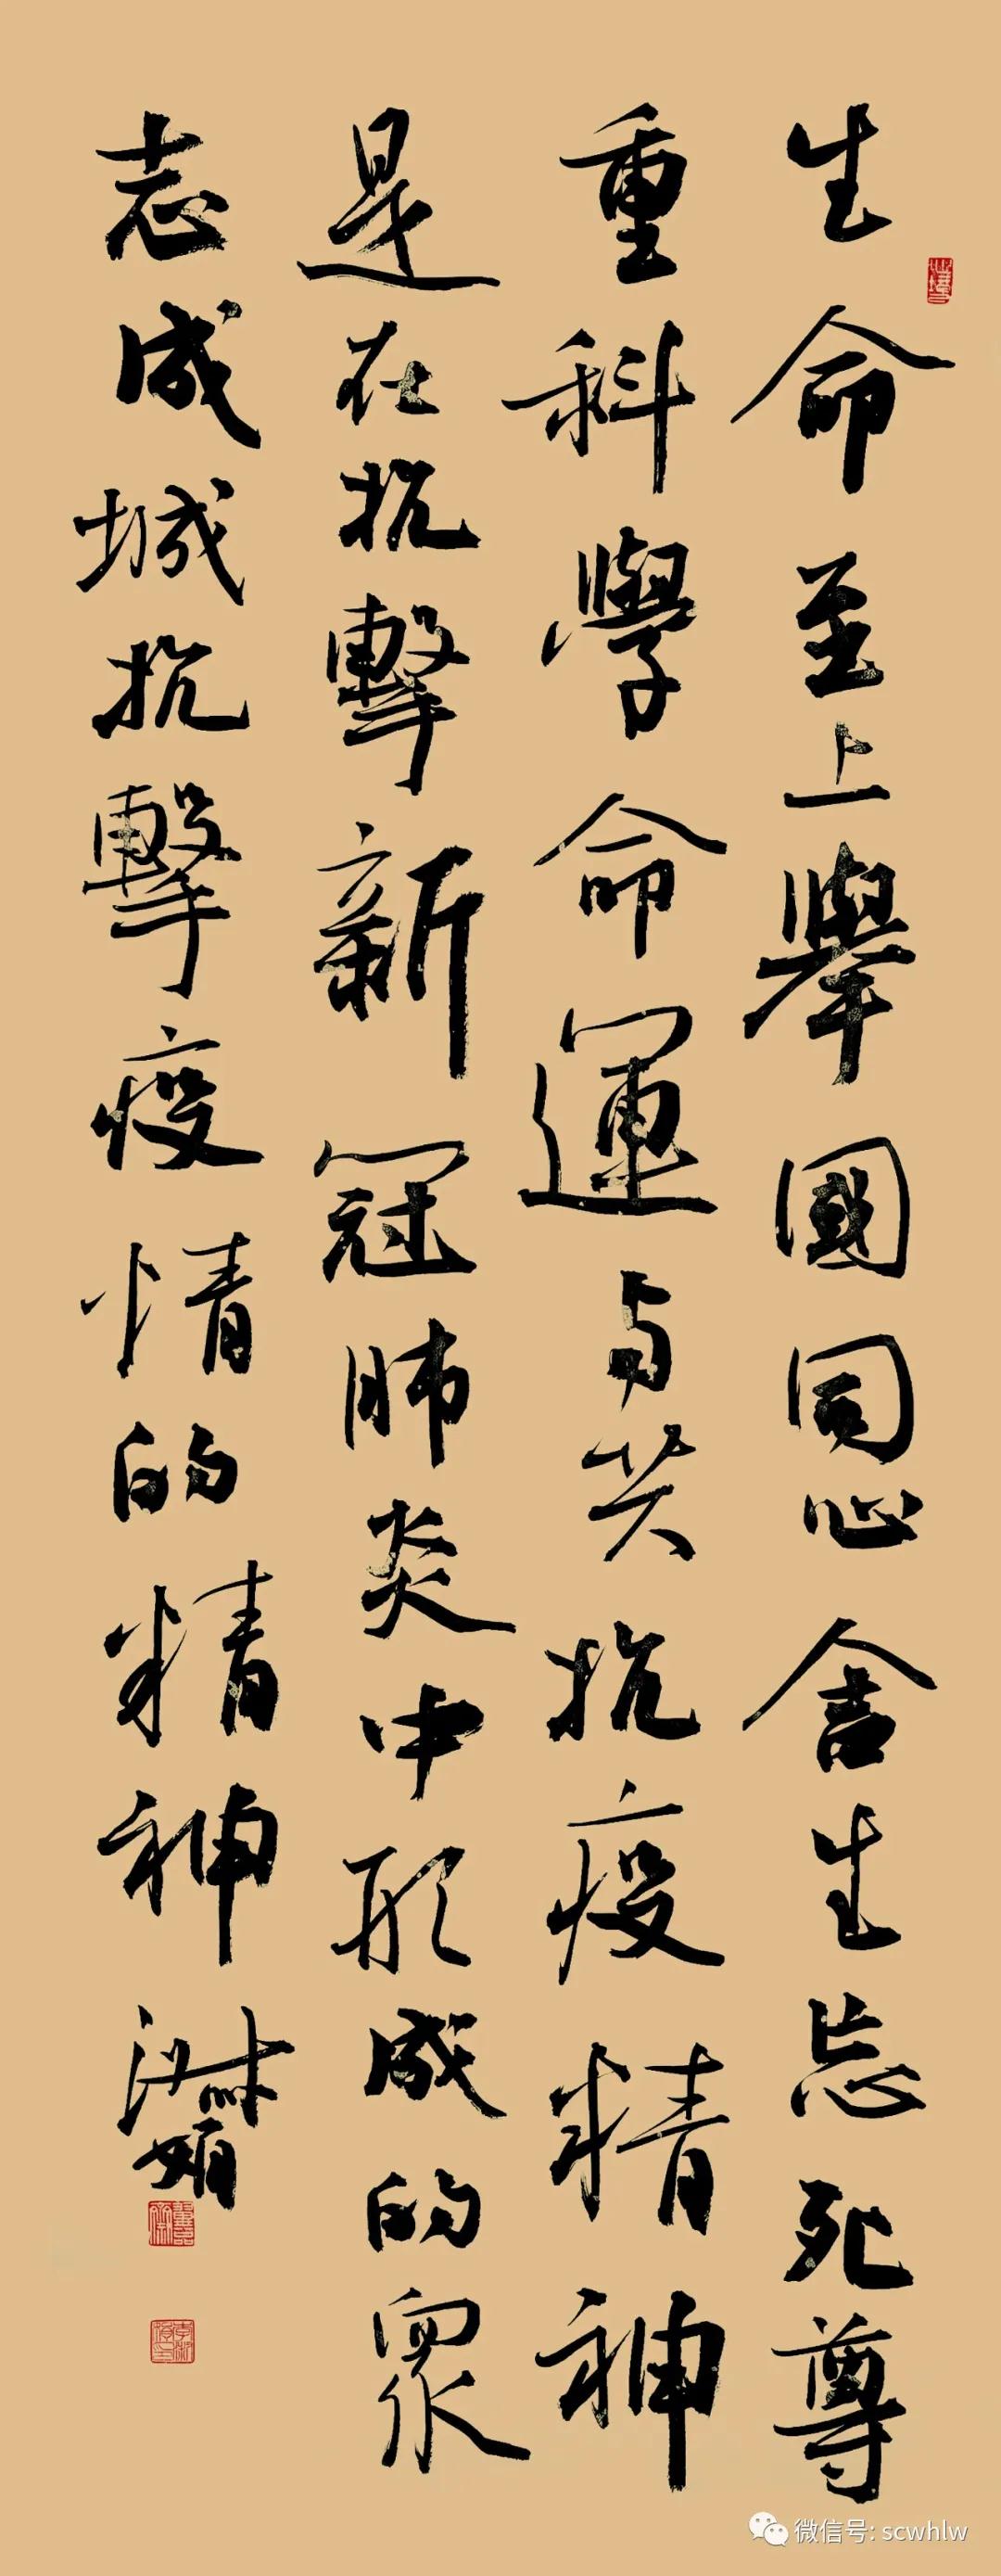 生命至上舉國同心舍生忘死尊
重科學命運与共抗疫精神
是在抗擊新冠肺炎中形成的眾
志成城抗擊疫情的精神
微信号: scwhlw